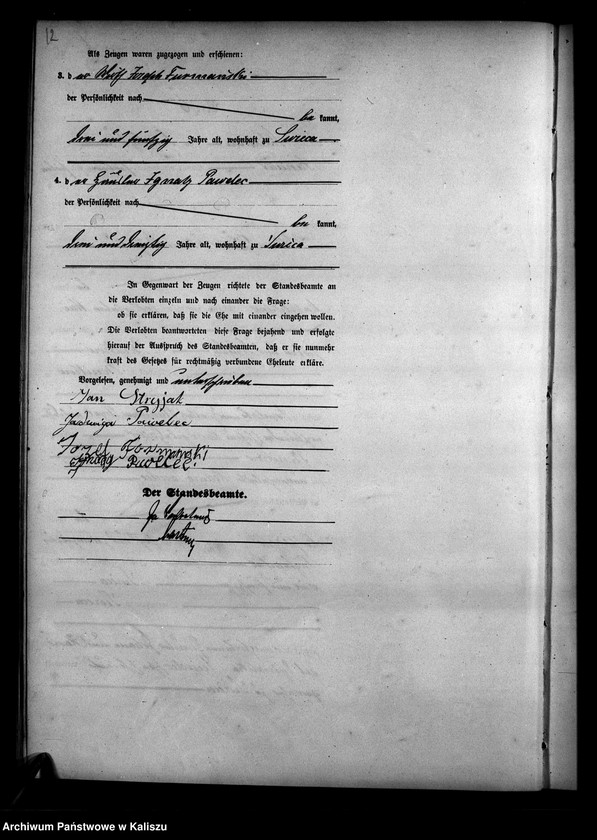 12
Als Zeugen waren zugezogen und erschienen:
3. d er Joseph Furmański
der Persönlichkeit nach
be kannt,
drei und fünfzig Jahre alt, wohnhaft zu
4. d er Häusler Ignatz Pawelec
der Persönlichkeit nach
be kannt,
drei und dreißig Jahre alt, wohnhaft zu
In Gegenwart der Zeugen richtete der Standesbeamte an
die Verlobten einzeln und nach einander die Frage:
ob sie erklären, daß sie die Ehe mit einander eingehen wollen.
Die Verlobten beantworteten diese Frage bejahend und erfolgte
hierauf der Ausspruch des Standesbeamten, daß er sie nunmehr
kraft des Gesetzes für rechtmäßig verbundene Eheleute erkläre.
Vorgelesen, genehmigt und unterschrieben
Jan Stryjak
Jadwiga Pawelec
Józef Formanski
Ignacy Pawelec
Der Standesbeamte.
Archiwum Państwowe w Kaliszu